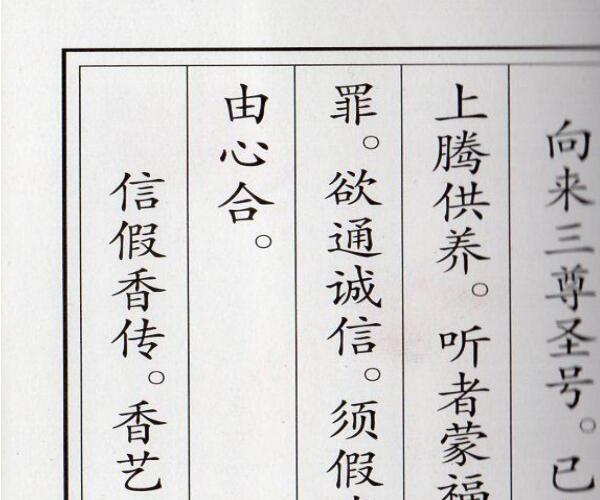 向来三尊圣号。已
上腾供养。听者蒙福
罪。欲通诚信。须假
由心合。
信假香传。香艺